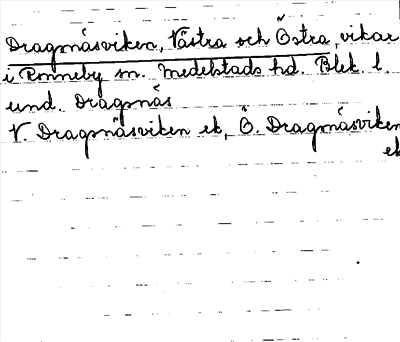 Dragsnäsviken, Västra och Östra, vikar
i Ronneby sn. Medelstads hd. Blek. l.
und. Dragsnäs
V. Dragsnäsviken ek, Ö. Dragsnäsviken
ek